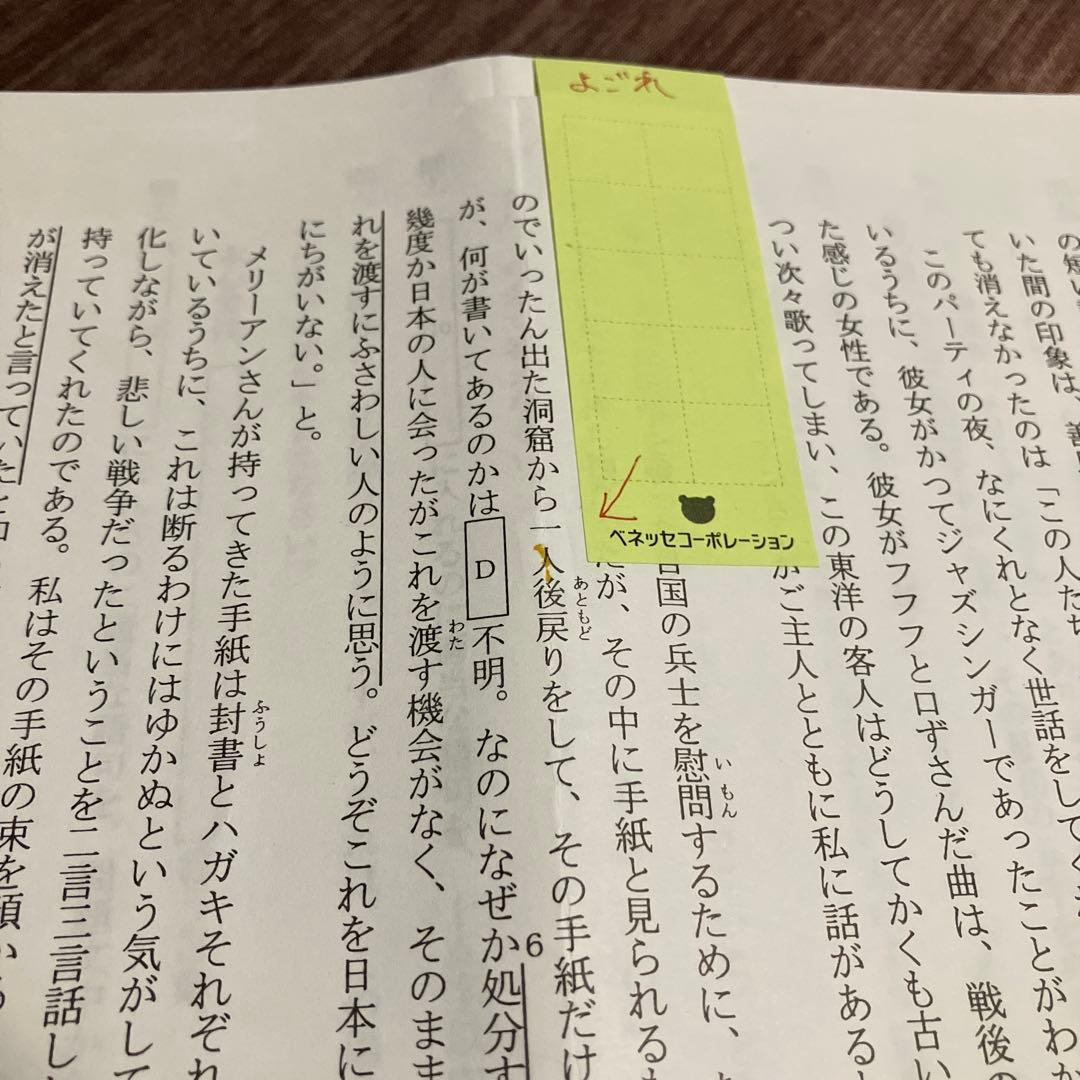 よごれ
ベネッセコーポレーション
の短い
いた間の印象は、善
ても消えなかったのは「この人たち
なにくれとなく世話をしてくる
このパーティの夜、彼女がかつてジャズシンガーであったことがわか
いるうちに、彼女がフフフと口ずさんだ曲は、戦後の
た感じの女性である。彼女がご主人とともに私に話がある
つい次々歌ってしまい、この東洋の客人はどうしてかくも古い
国の兵士を慰問するために、
いもん
だが、その中に手紙と見られるも
のでいったん出た洞窟から一人後戻りをして、その手紙だけ
あともど
が、何が書いてあるのかは D 不明。なのになぜか処分す
6
幾度か日本の人に会ったがこれを渡す機会がなく、そのまま
わた
れを渡すにふさわしい人のように思う。どうぞこれを日本に
にちがいない。」と。
メリーアンさんが持ってきた手紙は封書とハガキそれぞれ
ふうしょ
いているうちに、これは断るわけにはゆかぬという気がして
化しながら、悲しい戦争だったということを二言三言話し
持っていてくれたのである。私はその手紙の束を預かる
が消えたと言っていたと